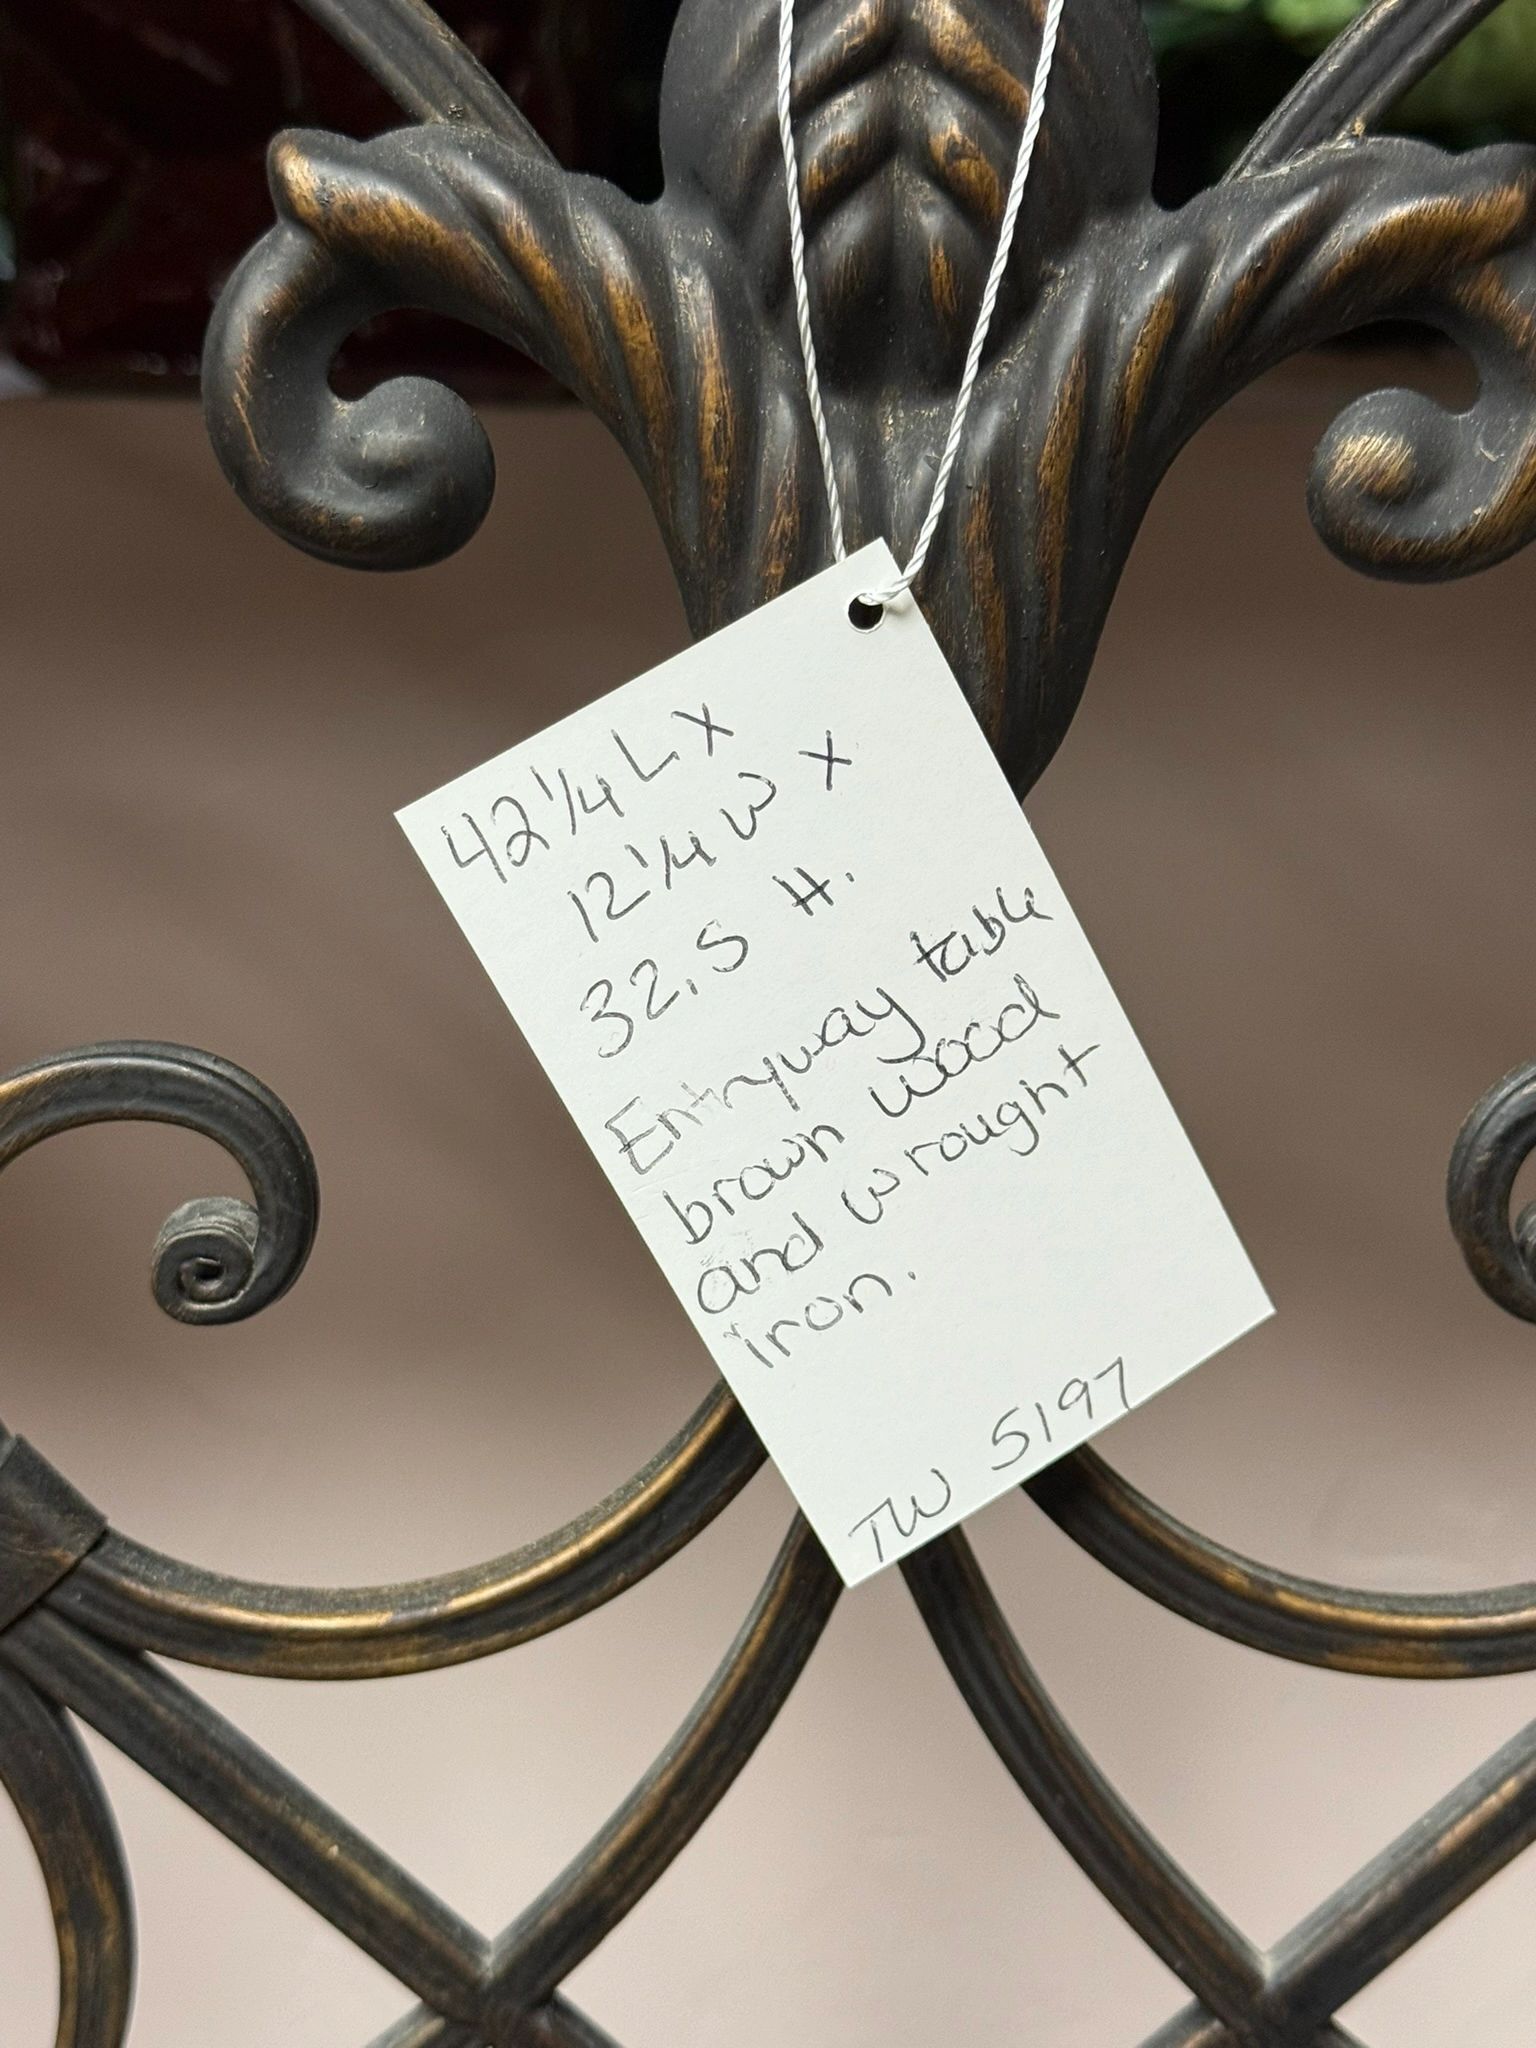 42 1/4 L x
12 1/4 W x
32.5 H.
Entryway table
brown wood
and wrought
iron.
TW 5197